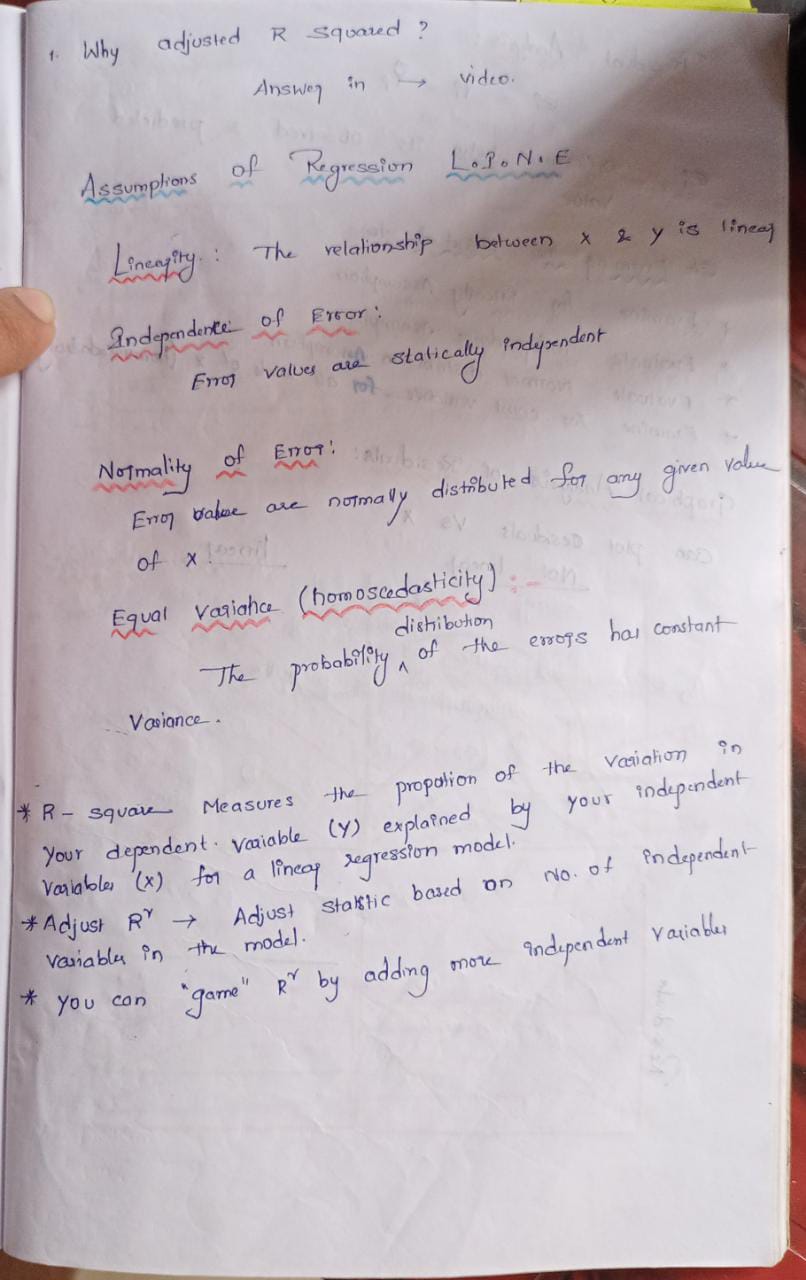 1. Why adjusted R squared ?
Answer in → video.
Assumptions of Regression L.I.N.E
Linearity : The relationship between x & y is linear
Independence of Error :
Error values are statically independent
Normality of Error :
Error value are normally distributed for any given value
of x.
Equal Variance (homoscedasticity) :-
distribution
The probability ^ of the errors has constant
Variance.
* R - square Measures the propotion of the variation in
your dependent. variable (Y) explained by your independent
Variables (x) for a linear regression model.
* Adjust R² → Adjust statstic based on No. of independent
variables in the model.
* you can "game" R² by adding more independent variables